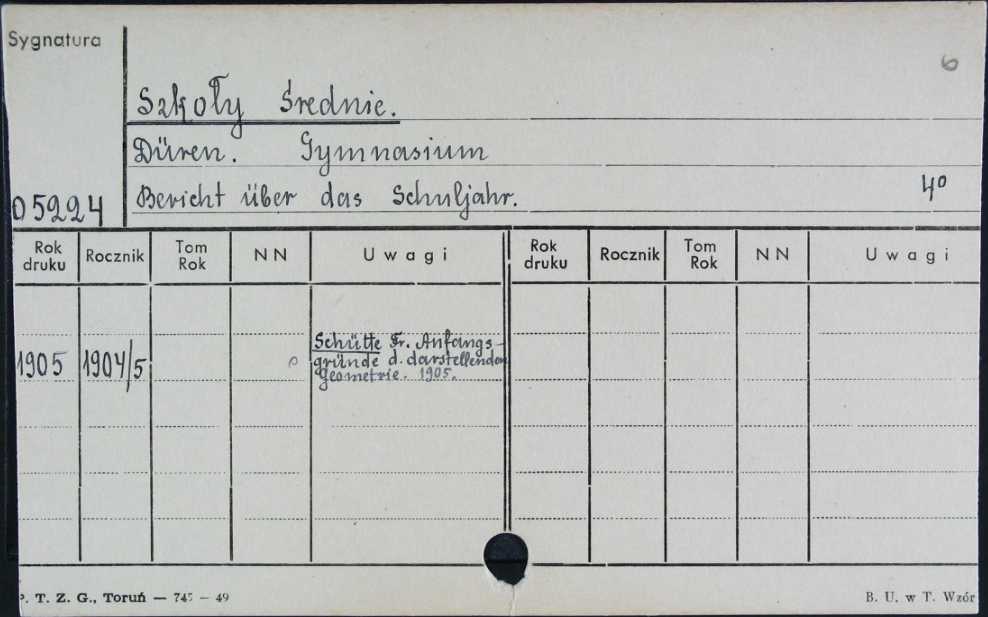 Sygnatura
6
Szkoły Średnie.
Düren. Gymnasium
Bericht über das Schuljahr. 4°
05224
Rok druku Rocznik Tom Rok NN Uwagi Rok druku Rocznik Tom Rok NN Uwagi
1905 1904/5 Schütte Fr. Anfangs-
gründe d. darstellenden
Geometrie. 1905.
P. T. Z. G., Toruń — 745 — 49 B. U. w T. Wzór